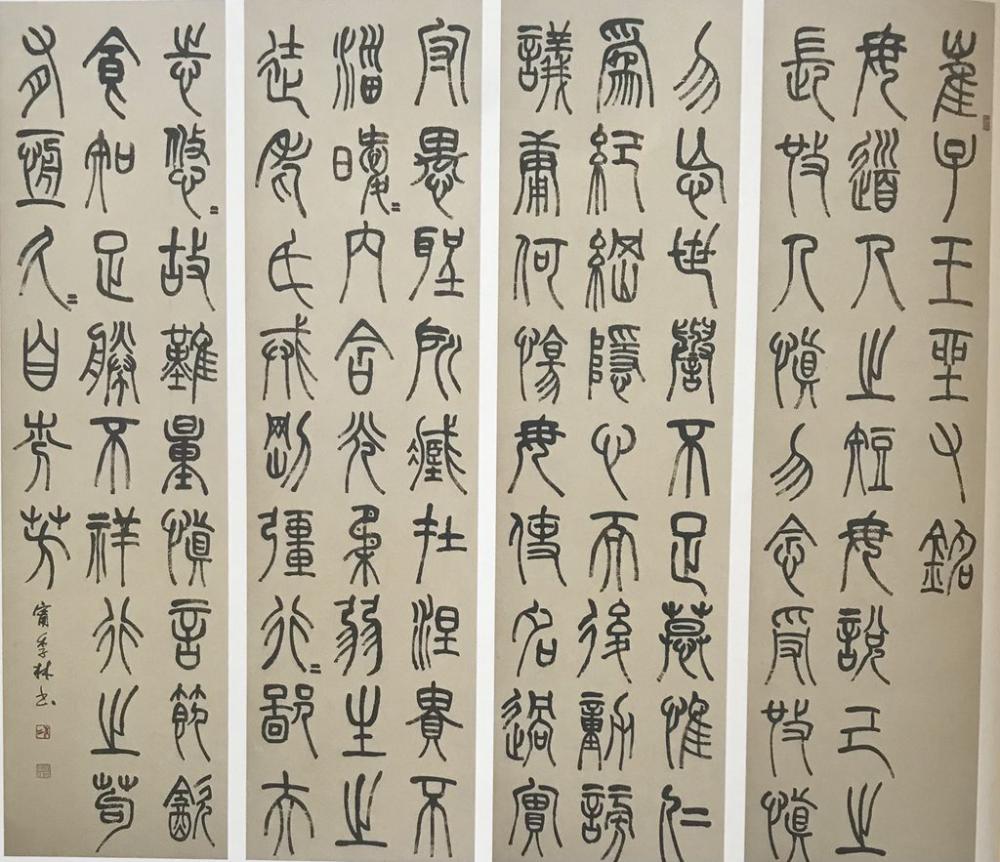 崔子玉坐右銘
毋道人之短毋說己之
長施人慎勿念受施慎
勿忘世譽不足慕惟仁
爲紀綱隱心而後動謗
議庸何傷毋使名過實
守愚聖所臧在涅貴不
淄曖=內含光柔弱生之
徒老氏戒剛彊行=鄙夫
志悠=故難量慎言節飲
食知足勝不祥行之苟
有恆久=自芬芳
季林書